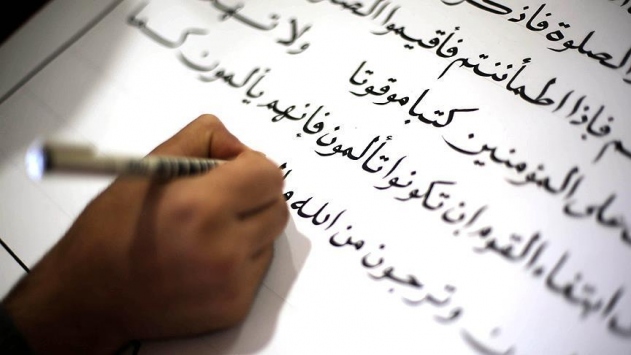 الصلوة فاذكر
فاذا اطمأننتم فأقيموا
على المؤمنين كتبا موقوتا ولا
ابتغاء القوم إن تكونوا تألمون فإنهم يألمون كما
وترجون من الله ما